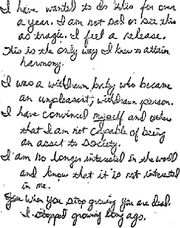 I have wanted to do this for over
a year. I am not sad or see this
as tragic. I feel a release.
This is the only way I know to attain
harmony.
I was a withdrawn baby who became
an unpleasant, withdrawn person.
I have convinced myself and others
that I am not capable of being
an asset to society.
I am no longer interested in the world
and know that it is not interested
in me.
you stop growing you are dead.
I stopped growing long ago.